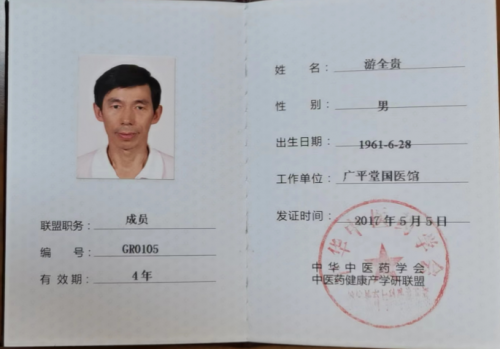 联盟职务：成员
编号：GR0105
有效期：4年
姓名：游全贵
性别：男
出生日期：1961-6-28
工作单位：广平堂国医馆
发证时间：2017年5月5日
中华中医药学会
中医药健康产学研联盟